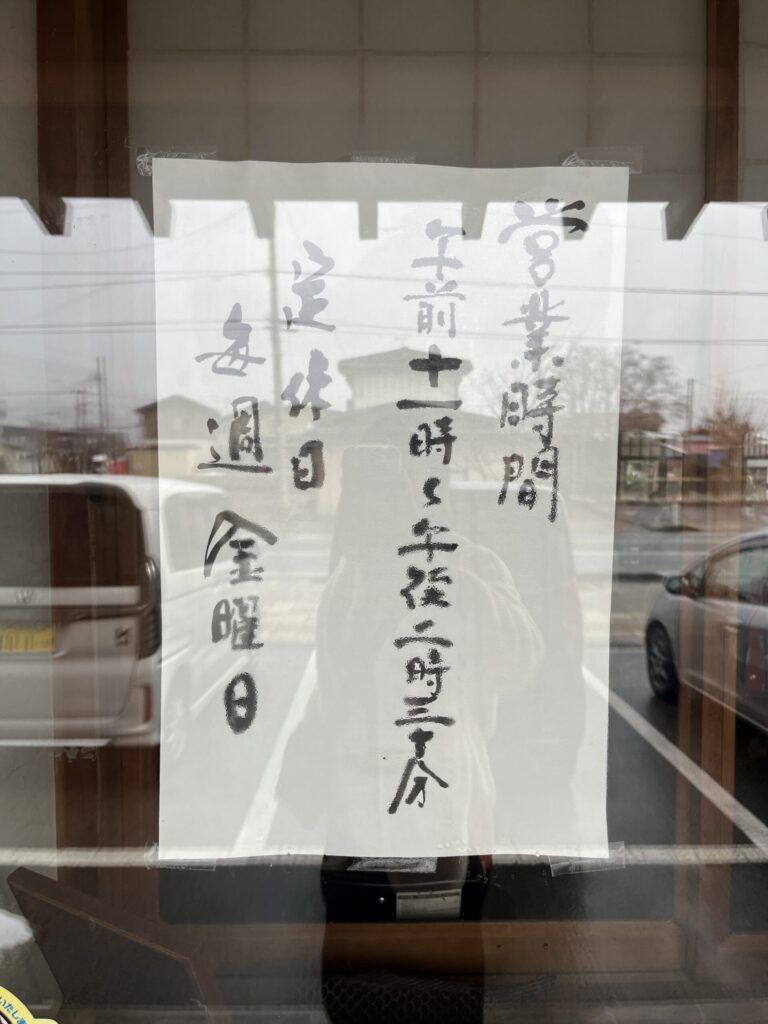 営業時間
午前十一時〜午後二時三十分
定休日
毎週金曜日
いたしま